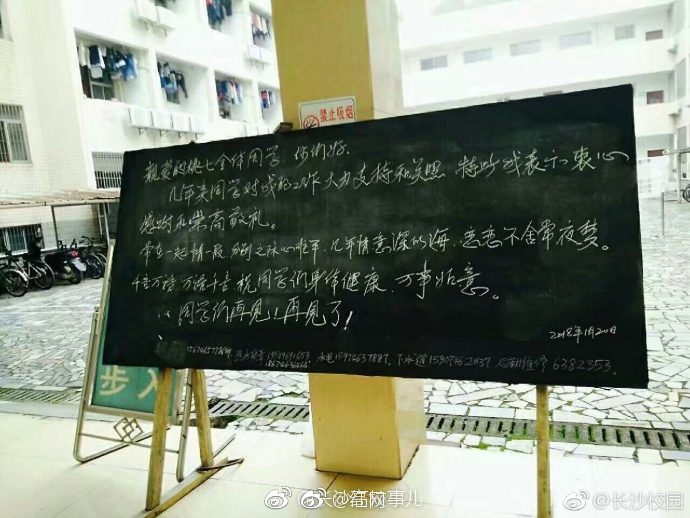 禁止吸烟
亲爱的桃七全体同学 你们好.
几年来同学对我的工作大力支持和关照 特此我表示衷心
感谢和崇高敬礼。
常在一起情一般 分别之际心难平, 几年情意深似海, 恋恋不舍常夜梦。
千言万语 万语千言 祝同学们身体健康、万事如意。
同学们再见!再见了!
2018年1月20日
水电13974637887. 下水道15907462037 后勤维修 6382353.
步入
@长沙校园